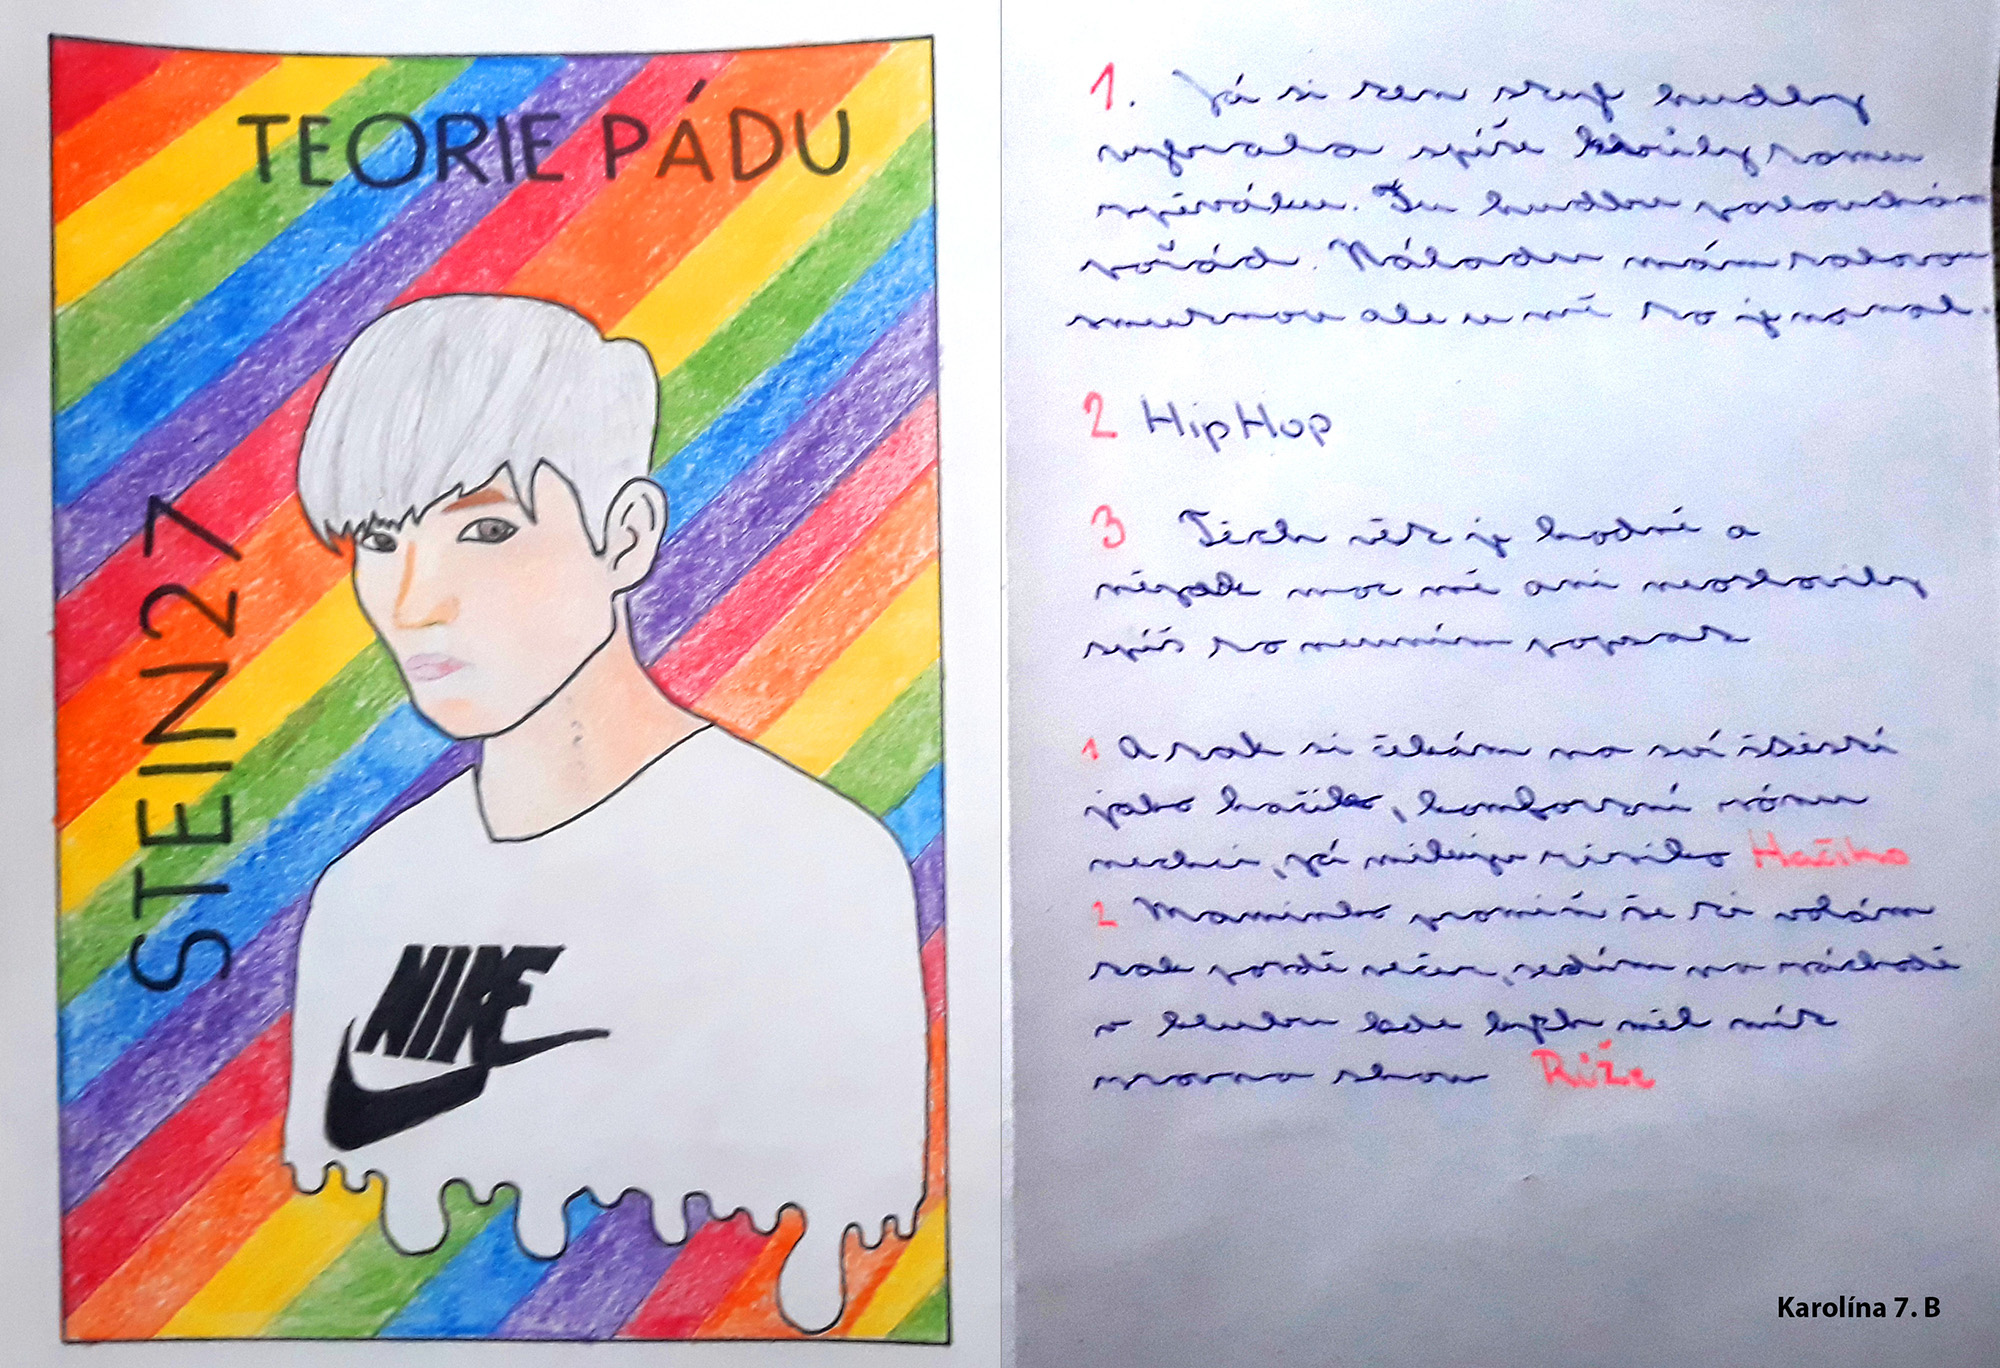 TEORIE PÁDU
STEIN27
NIKE
1. Já si ten styl hudby
vybrala spíše kvůli tomu
zpěváku. Tu hudbu poslouchám
pořád. Náladu mám takovou
smutnou ale u mě to je normal.
2 HipHop
3 Těch vět je hodně a
nějak moc mě ani neoslovily
spíš to neumím popsat
1 A tak si čekám na své štěstí
jako hačiko, komfortní zónu
nechci, já miluju riziko Hačiko
2 Maminko promiň že ti volám
tak pozdě večer, sedím na záchodě
v klubu kde bych měl mít
zrovna show Růže
Karolína 7. B